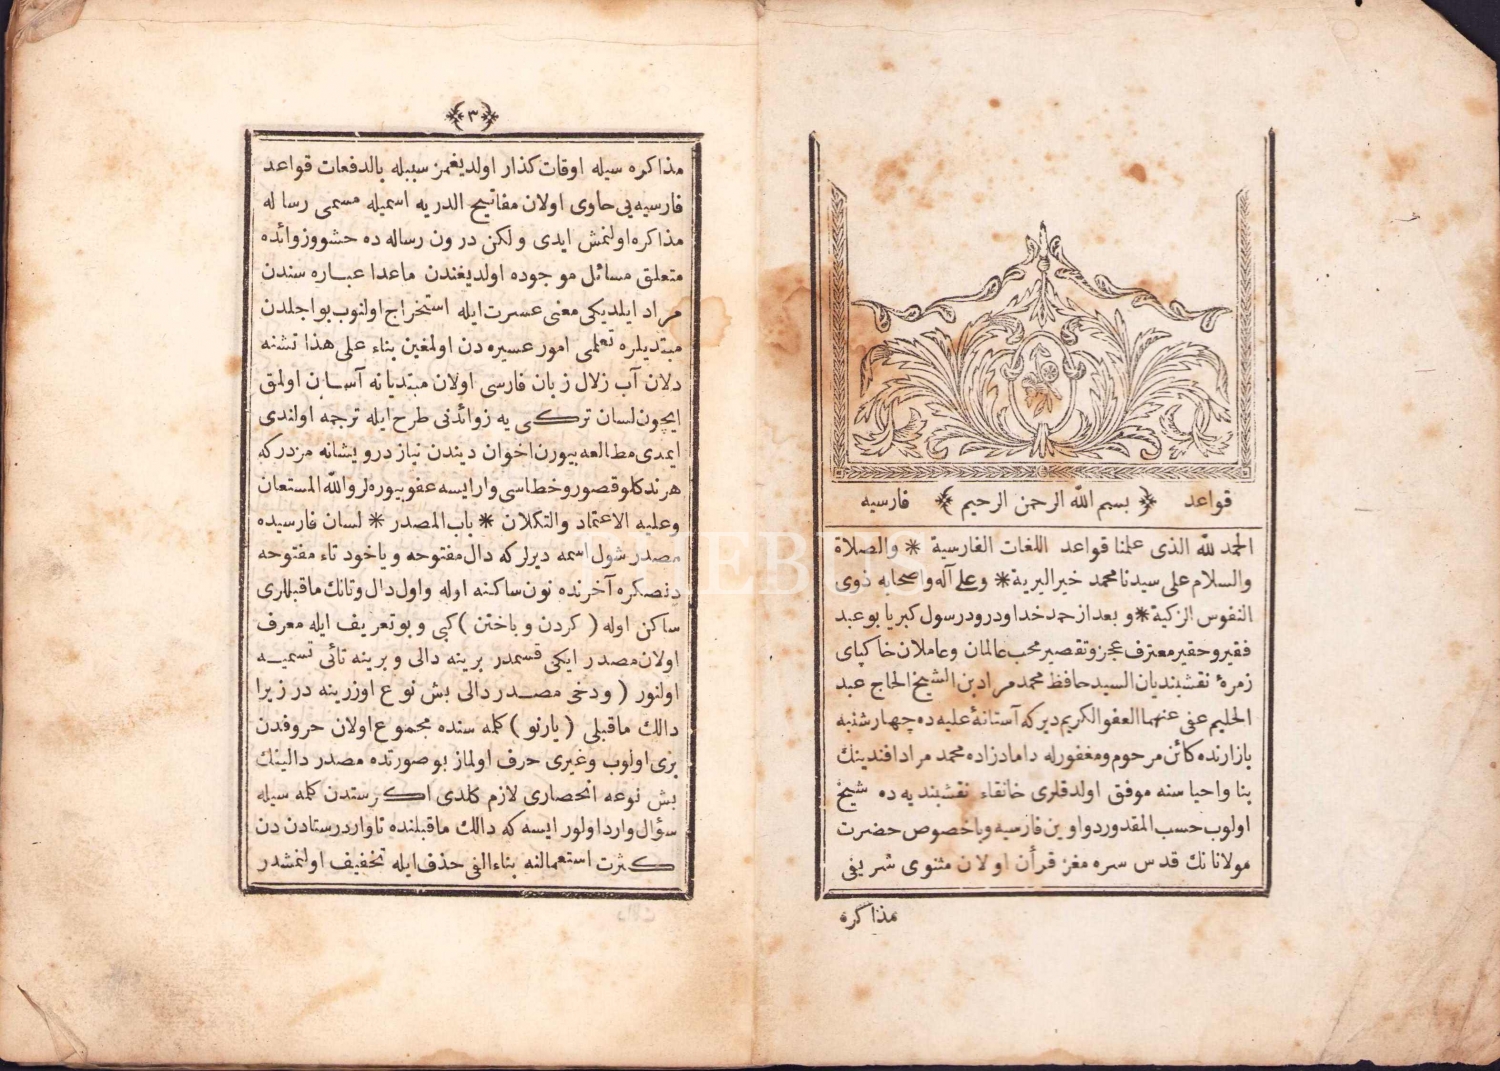 قواعد ﴿ بسم الله الرحمن الرحيم ﴾ فارسيه
الحمد لله الذى علمنا قواعد اللغات الفارسية * والصلاة
والسلام على سيدنا محمد خير البرية * وعلى آله واصحابه ذوى
النفوس الزكية * و بعد از حمد خدا ودرود رسول كبريا بو عبد
فقير وحقير معترف عجز وتقصير محب عالمان وعاملان خاكپاى
زمرۀ نقشبنديان السيد حافظ محمد مراد بن الشيخ الحاج عبد
الحليم عفى عنهما العفو الكريم ديركه آستانۀ عليه ده چهارشنبه
بازارنده كائن مرحوم ومغفور له دامادزاده محمد مراد افندينك
بنا واحياسنه موفق اولدقلرى خانقاه نقشبنديه ده شيخ
اولوب حسب المقدور دواوين فارسيه وباخصوص حضرت
مولانانك قدس سره مغز قرأن اولان مثنوى شريفى
مذاكره
﴿٣﴾
مذاكره سيله اوقات كذار اولديغمز سببله بالدفعات قواعد
فارسيه يى حاوى اولان مفاتيح الدريه اسميله مسمى رساله
مذاكره اولنمش ايدى ولكن درون رساله ده حشو وزوائده
متعلق مسائل موجوده اولديغندن ماعدا عباره سندن
مراد ايلديكى معنى عسرت ايله استخراج اولنوب بو اجلدن
مبتديلره تعلمى امور عسيره دن اولمغين بناء على هذا تشنه
دلان آب زلال زبان فارسى اولان مبتديانه آسان اولمق
ايچون لسان تركى يه زوائدنى طرح ايله ترجمه اولندى
ايمدى مطالعه بيورن اخوان ديندن نياز درويشانه مزدركه
هرنه كلو قصور وخطاسى وار ايسه عفو بيوره لر والله المستعان
وعليه الاعتماد والتكلان * باب المصدر * لسان فارسيده
مصدر شول اسمه ديرلركه دال مفتوحه وياخود تاء مفتوحه
دنصكره آخرنده نون ساكنه اوله واول دال وتانك ماقبللرى
ساكن اوله ( كردن و باختن ) كبى و بو تعريف ايله معرف
اولان مصدر ايكى قسمدر برينه دالى و برينه تائى تسميه
اولنور ( ودخى مصدر دالى بش نوع اوزرينه در زيرا
دالك ماقبلى ( يارنو ) كلمه سنده مجموع اولان حروفدن
برى اولوب وغيرى حرف اولماز بو صورتده مصدر دالينك
بش نوعه انحصارى لازم كلدى اكر ستدن كلمه سيله
سؤال وارد اولور ايسه كه دالك ماقبلنده تا وارد رستادن دن
كثرت استعمالنه بناء الفى حذف ايله تخفيف اولنمشدر
PHEBUS